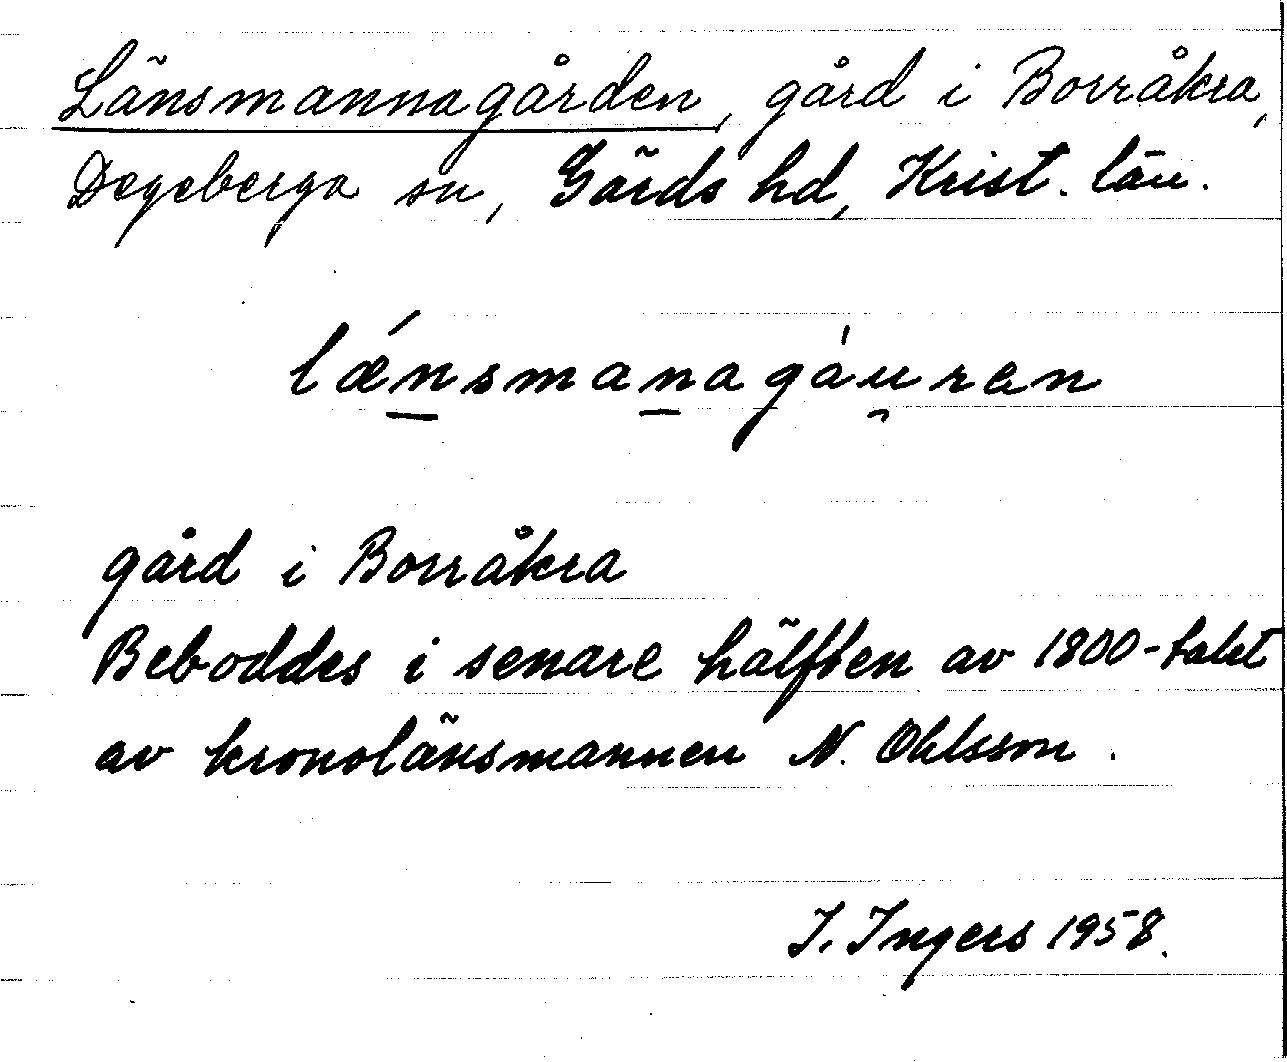 Länsmannagården, gård i Borråkra,
Degeberga sn, Gärds hd, Krist. län.
lǽn̠sman̠agáu̯ren
gård i Borråkra
Beboddes i senare hälften av 1800-talet
av kronolänsmannen N. Ohlsson.
I. Ingers 1958.